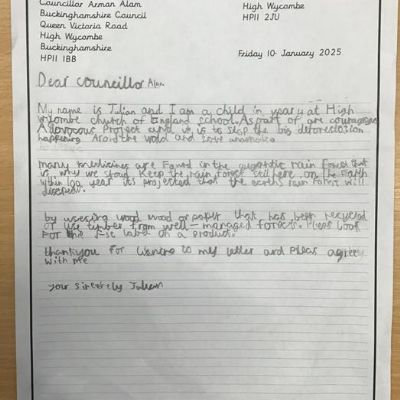 Councillor Arman Alam
Buckinghamshire Council
Queen Victoria Road
High Wycombe
Buckinghamshire
HP11 1BB
High Wycombe
HP11 2JU
Friday 10 January 2025
Dear councillor Alam
My name is Julian and I am a child in year 4 at High
wycombe church of England school. As part of our courageous
Advocacy Project and us is to stop the big deforestation
happening Around the world and
many medicines are Found in the rain forest that
is why we Keep the rain forest still here on the Earth
within 100 year it's projected that the earths rain forest will
disappear.
by useing wood wood or paper that has been recycled
or use timber from well-managed forests. Pleas look
For the label on a product.
thankyou For to my letter and pleas agree
with me
your sincerely Julian